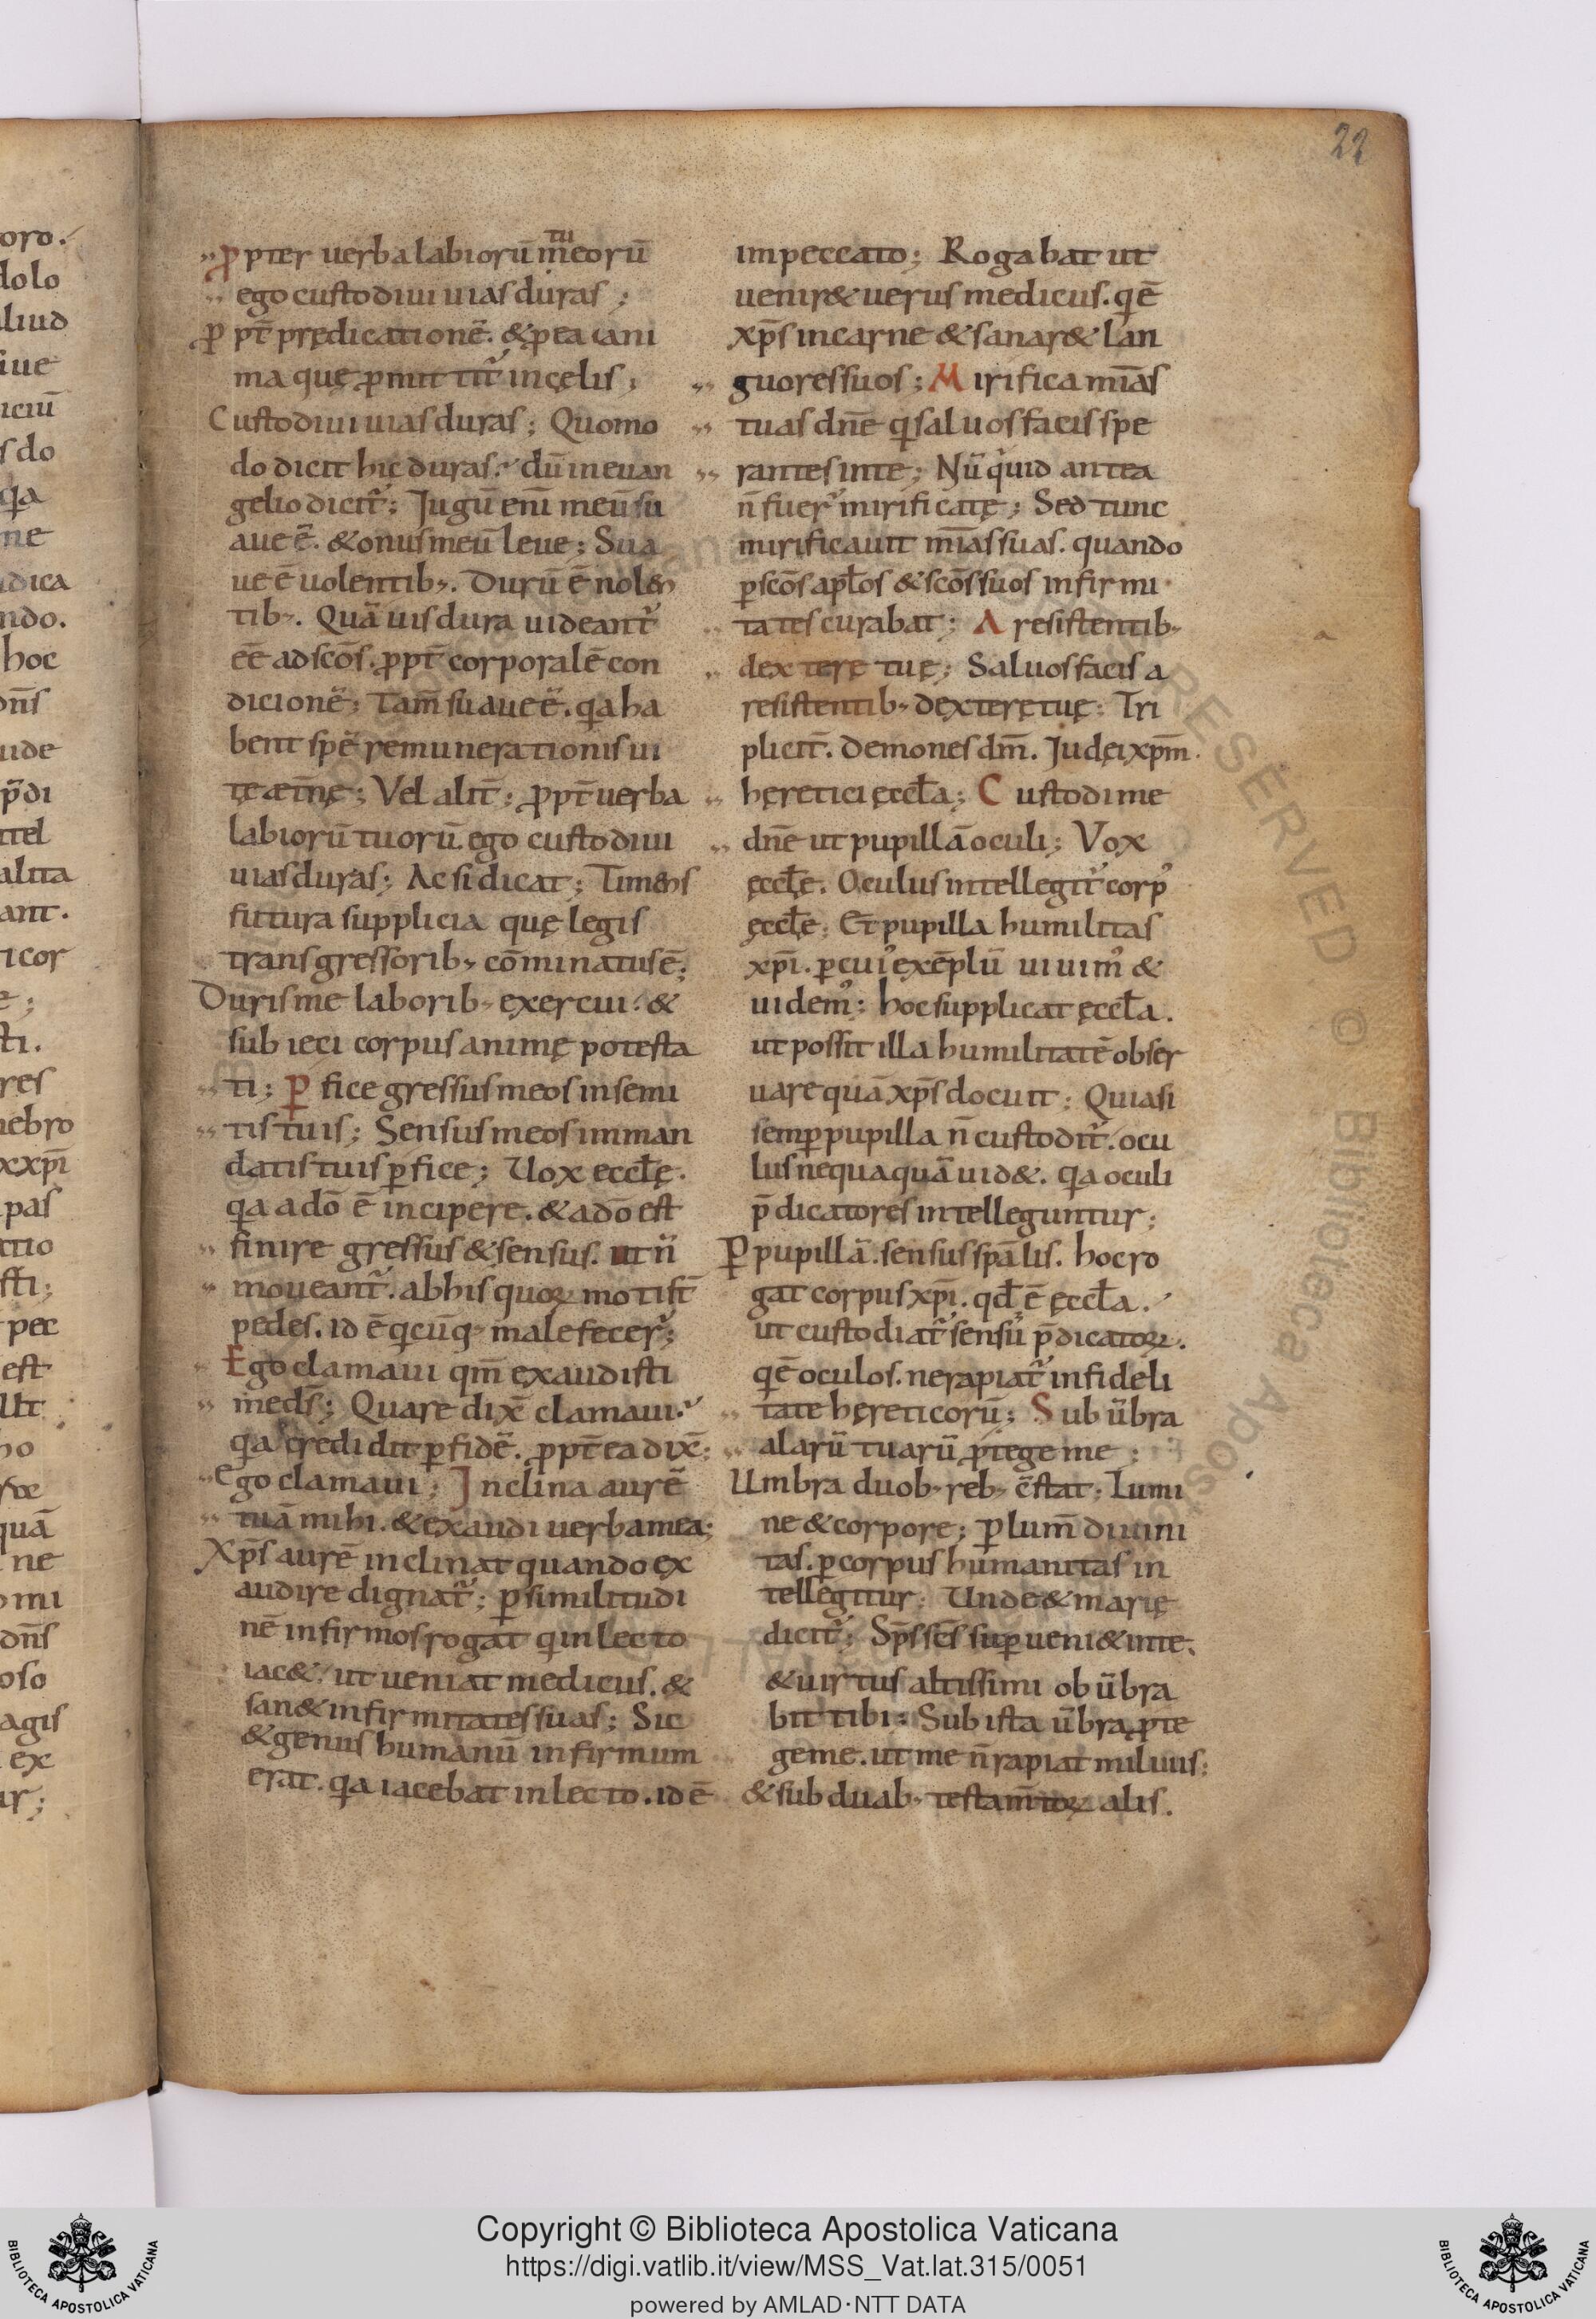 22
ꝓpter uerba labiorū m̄eorū
tu
ego custodiui uias duras;
ꝓpt̄ prędicationē. &ꝓ ea iani
ma quę ꝓmittit᷑ in cęlis;
Custodiui uias duras; Quomo
do dicit hic duras? dū in euan
gelio dicit᷑; Jugū eni meū su
aue ē. & onus meū leue; Sua
ue ē uolentib;. Durū ē nolen
tib;. Quāuis dura uideant᷑
eē ad scōs. ꝓpt̄ corporalē con
dicionē; Tam̄ suaue ē. qa ha
bent spē remunerationis ui
tę ætn̄ę; Vel alit̄; ꝓpt̄ uerba
labiorū tuorū. ego custodiui
uias duras; Ac si dicat; Timens
futura supplicia quę legis
transgressorib; cōminatus ē;
Duris me laborib; exercui. &
subieci corpus animę potesta
ti; ꝑfice gressus meos in semi
tis tuis; Sensus meos in man
datis tuis ꝑfice; Uox eccłę.
qa a dō ē incipere. & a dō est
finire gressus & sensus. ut ñ
moueant᷑. ab his quoꝝ moti st̄
pedes. id ē qcūq; male fecer᷑;
Ego clamaui qm̄ exaudisti
me ds̄; Quare dix̄ clamaui?
qa credidit ꝑ fidē. ꝓpt̄ ea dix̄;
ego clamaui; Inclina aurē
tuā mihi. & exaudi uerba mea;
Xp̄s aurē inclinat quando ex
audire dignat᷑; ꝑ similitudi
nē infirmos rogat qui in lecto
iac&. ut ueniat medicus. &
san& infirmitates suas; Sic
& genus humanū infirmum
erat. qa iacebat in lecto. id ē
in peccato; Rogabat ut
uenir& uerus medicus. qē
xp̄s in carne & sanar& lan
guores suos; Mirifica mīas
tuas dnē qi saluos facis spe
rantes in te; Nūquid antea
n̄ fuer᷑ mirificatę; Sed tunc
mirificauit mīas suas. quando
ꝑ scōs apłos & scōs suos infirmi
tates curabat; A resistentib;
dexterę tuę; Saluos facis a
resistentib; dexterę tuę; Tri
plicit̄. Demones dm̄. Judęi xpm̄.
hęretici ęccła; Custodi me
dnē ut pupillā oculi; Vox
ęccłę. Oculus intellegit᷑ corp᷒
ęccłę; Et pupilla humilitas
xpī. ꝑ cui᷒ exēplū uiuim᷒ &
uidem᷒; hoc supplicat ęccła.
ut possit illa humilitatē obser
uare quā xp̄s docuit; Quia si
semꝑ pupilla n̄ custodit᷑. ocu
lus nequaquā uid&. qa oculi
p̄dicatores intelleguntur;
ꝑ pupillā. sensus spālis. hoc ro
gat corpus xpī. qđ ē ęccła.
ut custodiat᷑ sensū p̄dicatoꝝ.
qē oculos. ne rapiat᷑ infideli
tate hęreticorū; Sub ūbra
alarū tuarū ꝓtege me;
Umbra duob; reb; cōstat; Lumi
ne & corpore; ꝑ lum̄ diuini
tas. ꝑ corpus humanitas in
tellegitur; Unde & marię
dicit᷑; Sp̄s scs̄ suꝑueni& in te.
& uirtus altissimi obūbra
bit tibi; Sub ista ūbra ꝓte
ge me. ut me n̄ rapiat miluus;
& sub duab; testam̄toꝝ alis.
Copyright © Biblioteca Apostolica Vaticana
https://digi.vatlib.it/view/MSS_Vat.lat.315/0051
powered by AMLAD·NTT DATA
BIBLIOTECA APOSTOLICA VATICANA
BIBLIOTECA APOSTOLICA VATICANA